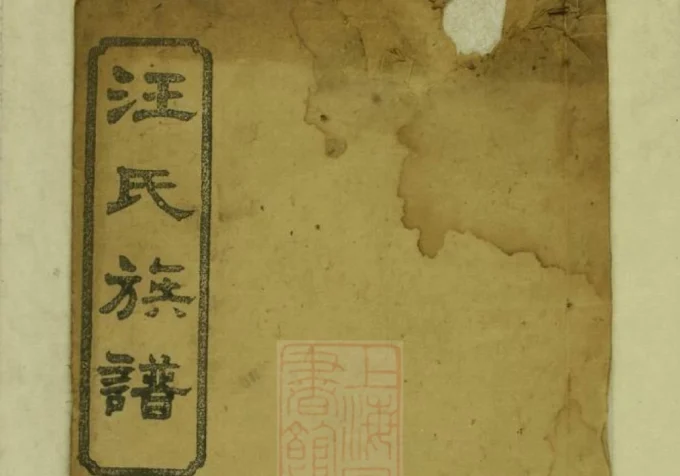 汪氏族譜
上海
書館